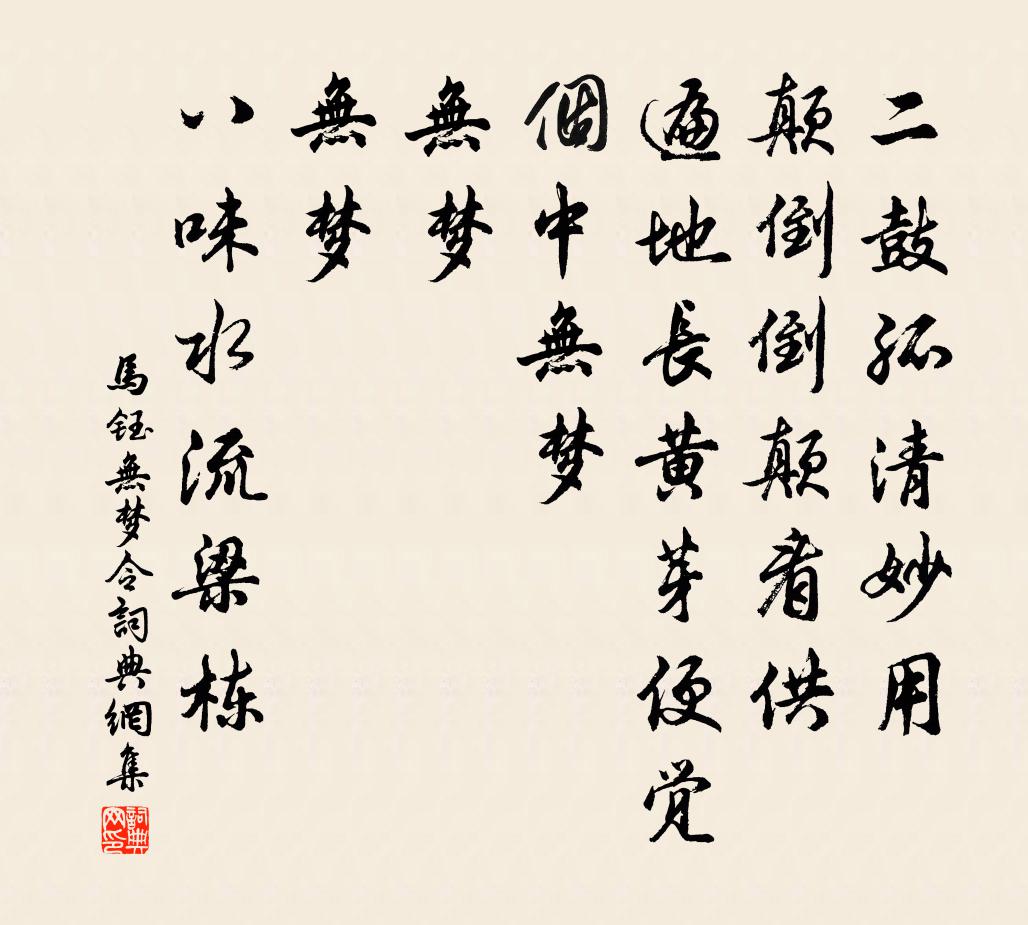 二鼓孤清妙用
颠倒倒颠看供
遍地長黄芽便觉
個中無梦
無梦
無梦
八味水流梁栋
馬钰無梦令詞典網集
詞典网印